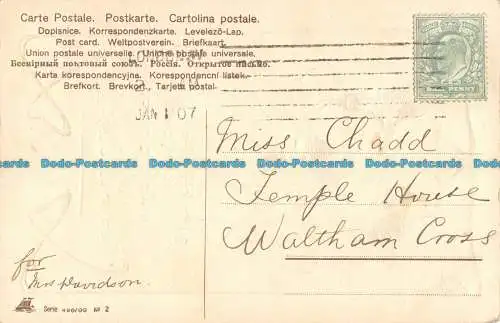 Carte Postale. Postkarte. Cartolina postale.
Dopisnice. Korrespondenzkarte. Levelező-Lap.
Post card. Weltpostverein. Briefkaart.
Union postale universelle. Unione postale universale.
Всемірный почтовый союзъ. Россія. Открытое письмо.
Karta korespondencyjna. Korespondenční lístek.
Brefkort. Brevkort. Tarjeta postal.
JAN 1 07
PENNY
Miss Chadd
Temple House
Waltham Cross
for
Mrs Davidson.
Serie № 2
Dodo-Postcards Dodo-Postcards Dodo-Postcards Dodo-Postcards
Dodo-Postcards Dodo-Postcards Dodo-Postcards Dodo-Postcards